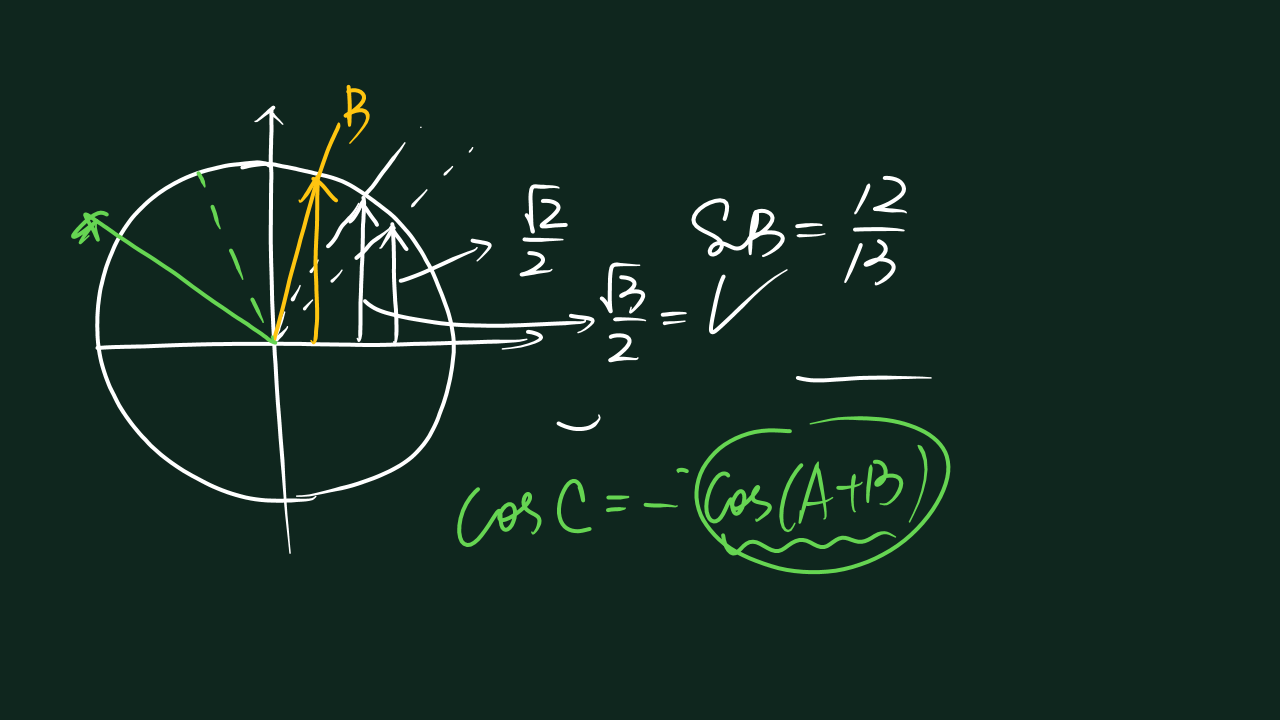 B
√2/2
SB = 12/13
√3/2 =
cos C = - cos(A+B)